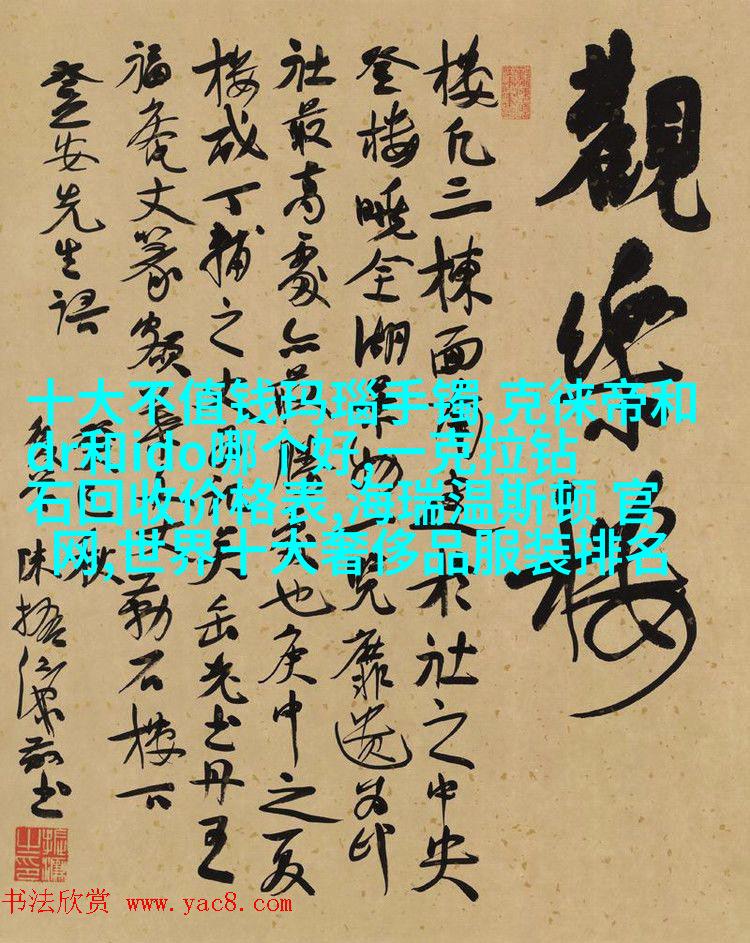 觀樂樓
樓凡三棟面於社之中央
登樓曉全湖景物一覽靡遺為印
社最高處亦最勝處也庚申之夏
樓成丁輔之吳缶老書丹王
福庵丈篆額勒石樓下
安先生語
十大不值钱玛瑙手镯,克徕帝和
dr和ido哪个好,一克拉钻
石回收价格表,海瑞温斯顿 官
网,世界十大奢侈品服装排名
书法欣赏 www.yac8.com